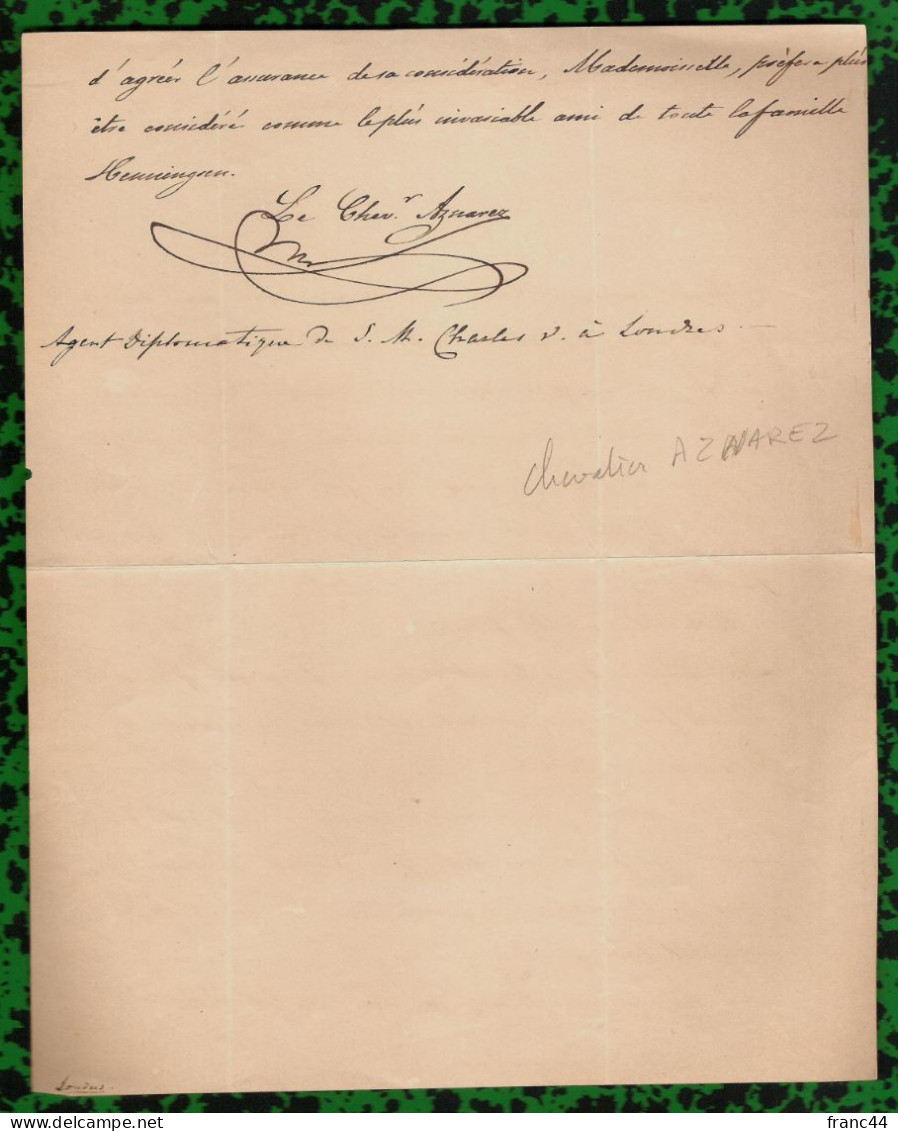 d'agréer l'assurance de sa considération, Mademoiselle, préfère plús
être considéré comme le plús invariable ami de toute la famille
Henningsen.
Le Chev.r Aznarez
Agent Diplomatique de S. M. Charles V. à Londres
Chevalier AZNAREZ
Londres.
franc44